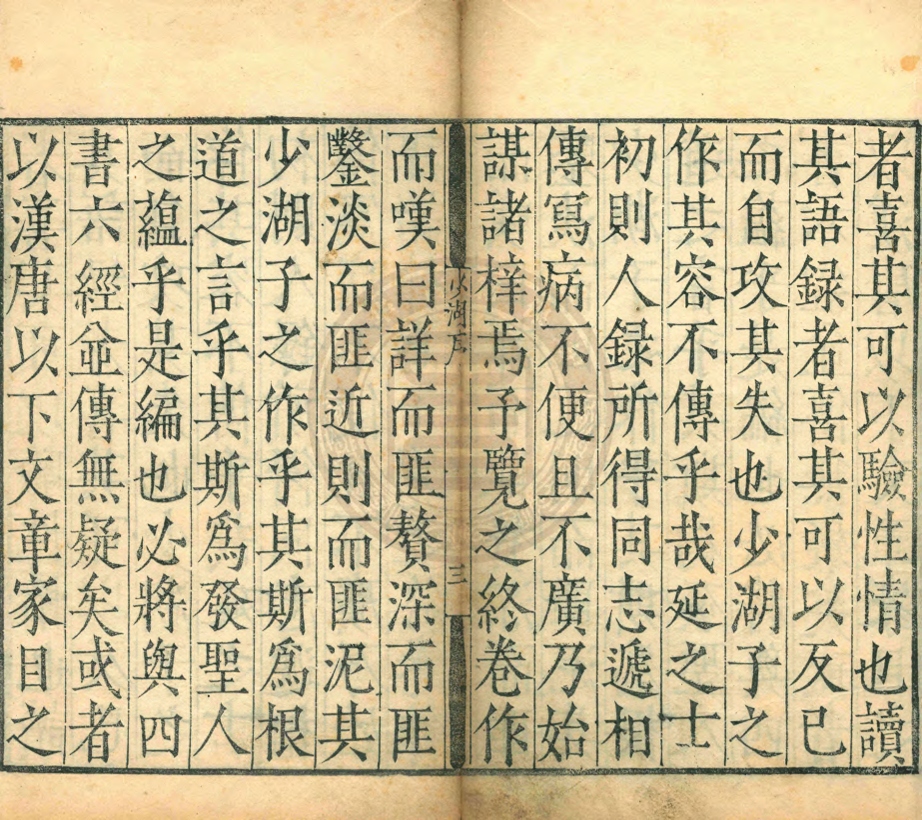 者喜其可以驗性情也讀
其語録者喜其可以反已
而自攻其失也少湖子之
作其容不傳乎哉延之士
初則人録所得同志遞相
傳冩病不便且不廣乃始
謀諸梓焉予覽之終卷作
少湖序
三
而嘆曰詳而匪贅深而匪
鑿淡而匪近則而匪泥其
少湖子之作乎其斯爲根
道之言乎其斯爲發聖人
之藴乎是編也必將與四
書六經並傳無疑矣或者
以漢唐以下文章家目之